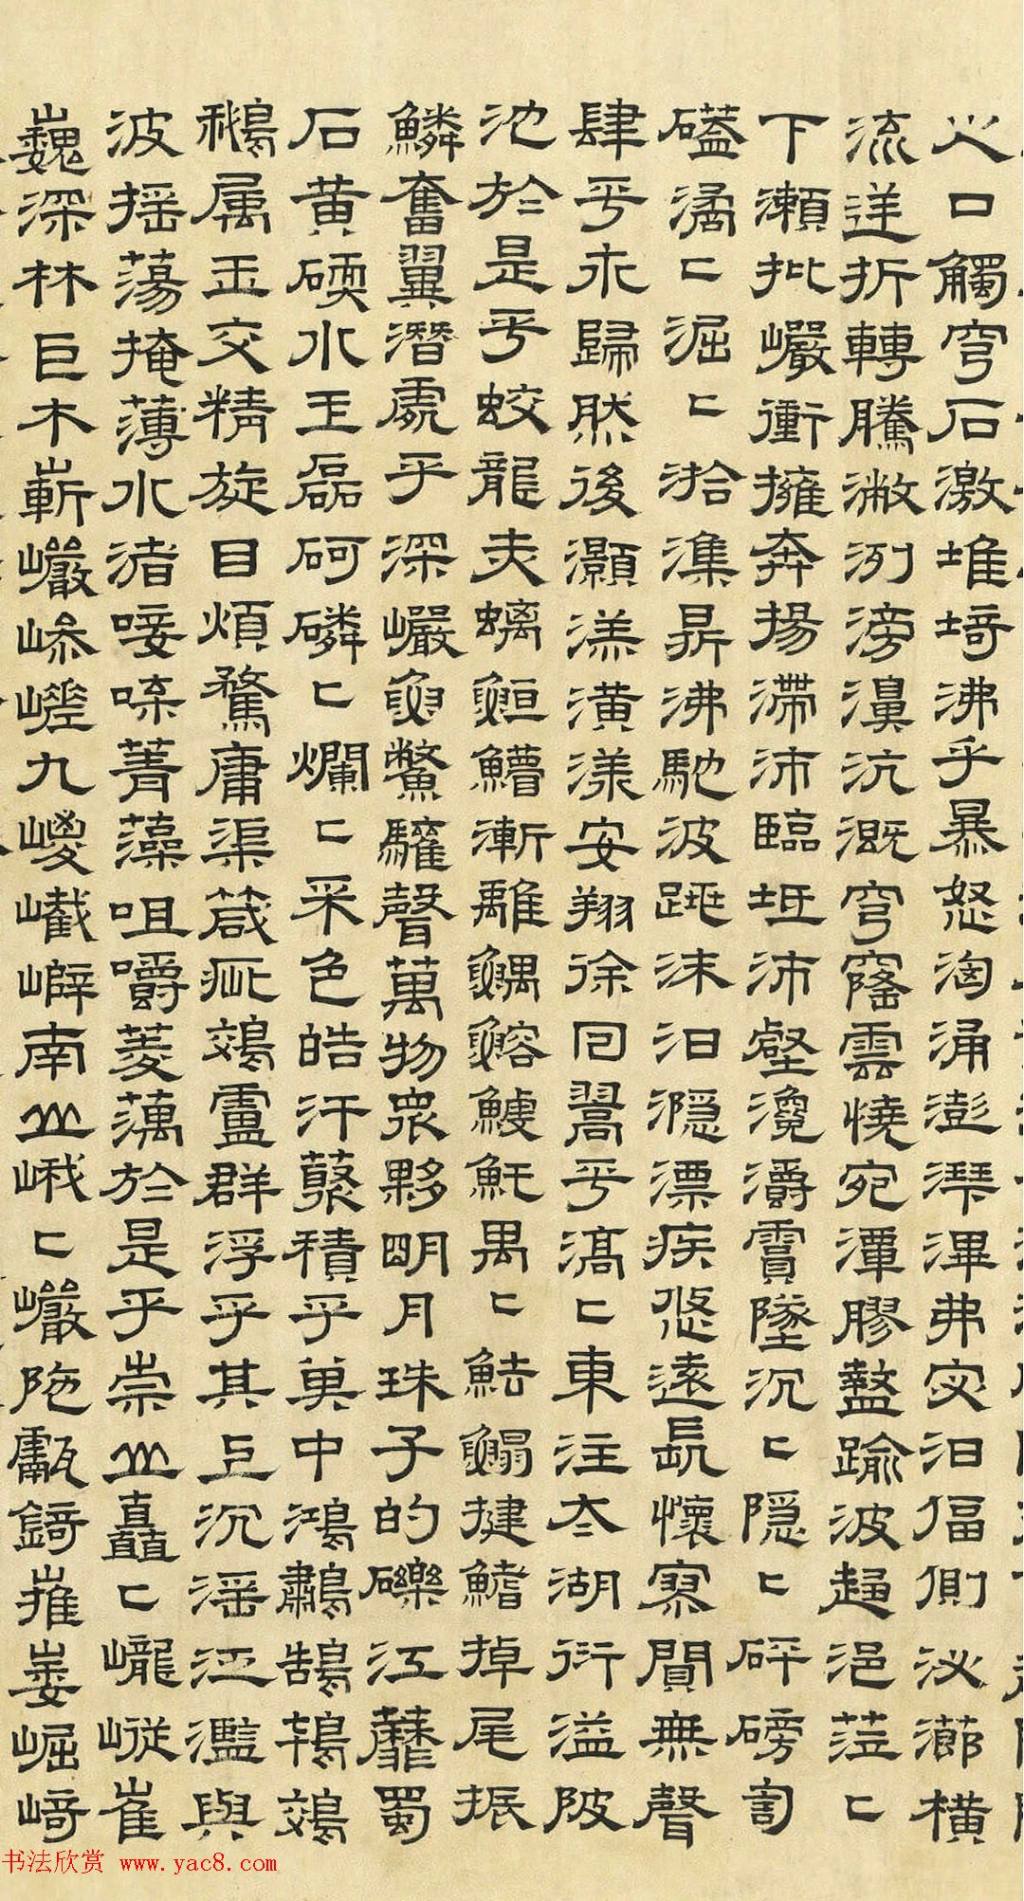 之口觸穹石激堆埼沸乎暴怒洶涌澎湃滭弗宓汩偪側泌瀄橫
流逆折轉騰潎洌滂濞沆溉穹窿雲橈宛潬膠盭踰波趨浥蒞〻
下瀨批巖衝擁奔揚滯沛臨坻沛壑瀺灂霣墜沉〻隱〻砰磅訇
礚潏〻淈〻湁潗鼎沸馳波跳沫汩㶏漂疾悠遠長懷寂漻無聲
肆乎永歸然後灝溔潢漾安翔徐回翯乎滈〻東注太湖衍溢陂
池於是乎蛟龍赤螭䱭䲛漸離鰅鰫鰬魠禺〻魼鰨揵鰭掉尾振
鱗奮翼潛處乎深巖魚鱉驩聲萬物衆夥明月珠子的礫江靡蜀
石黄碝水玉磊砢磷〻爛〻采色皓汗藂積乎其中鴻鷫鵠鴇鴐
鵝属玉交精旋目煩鶩庸渠箴疵鵁盧群浮乎其上沉淫泛濫與
波摇蕩掩薄水渚唼喋菁藻咀嚼菱藕於是乎崇山矗〻巃嵷崔
巍深林巨木嶄巖嵾嵳九嵕嶻嶭南山峩〻巖陁甗錡嶊崣崛崎
书法欣赏 www.yac8.com